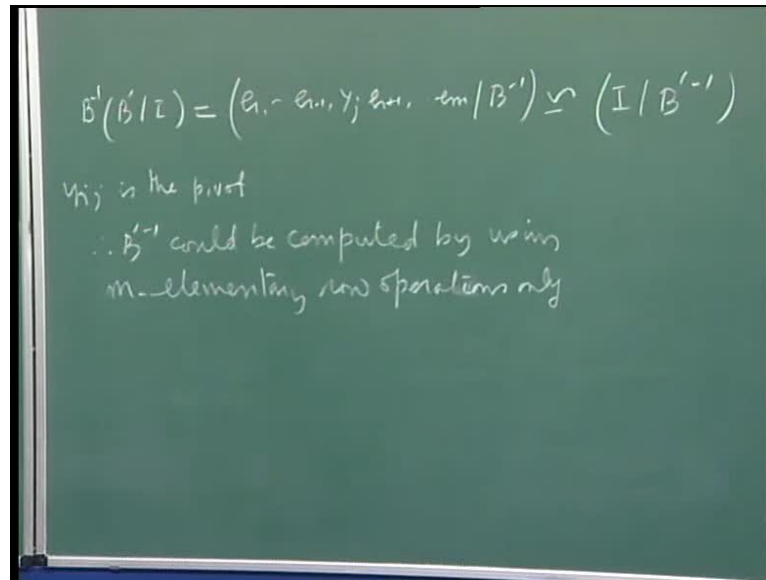 B⁻¹(B'/I) = (e₁, - eₙ₋₁, yⱼ eₙ₊₁, em/B⁻¹) ≃ (I/B'⁻¹)
yₙj is the pivot
∴ B'⁻¹ could be computed by using
m-elementary row operations only